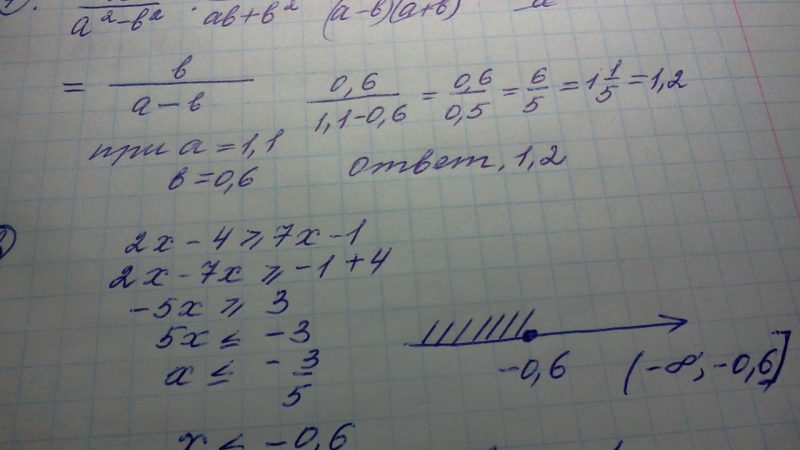 a²-b² · ab+b² (a-b)(a+b)
= b/(a-b) 0,6/(1,1-0,6) = 0,6/0,5 = 6/5 = 1 1/5 = 1,2
при a=1,1
b=0,6
ответ, 1,2
2x-4⩾7x-1
2x-7x⩾-1+4
-5x⩾3
5x≤-3
x≤-3/5
-0,6 (-∞; -0,6]
x≤-0,6